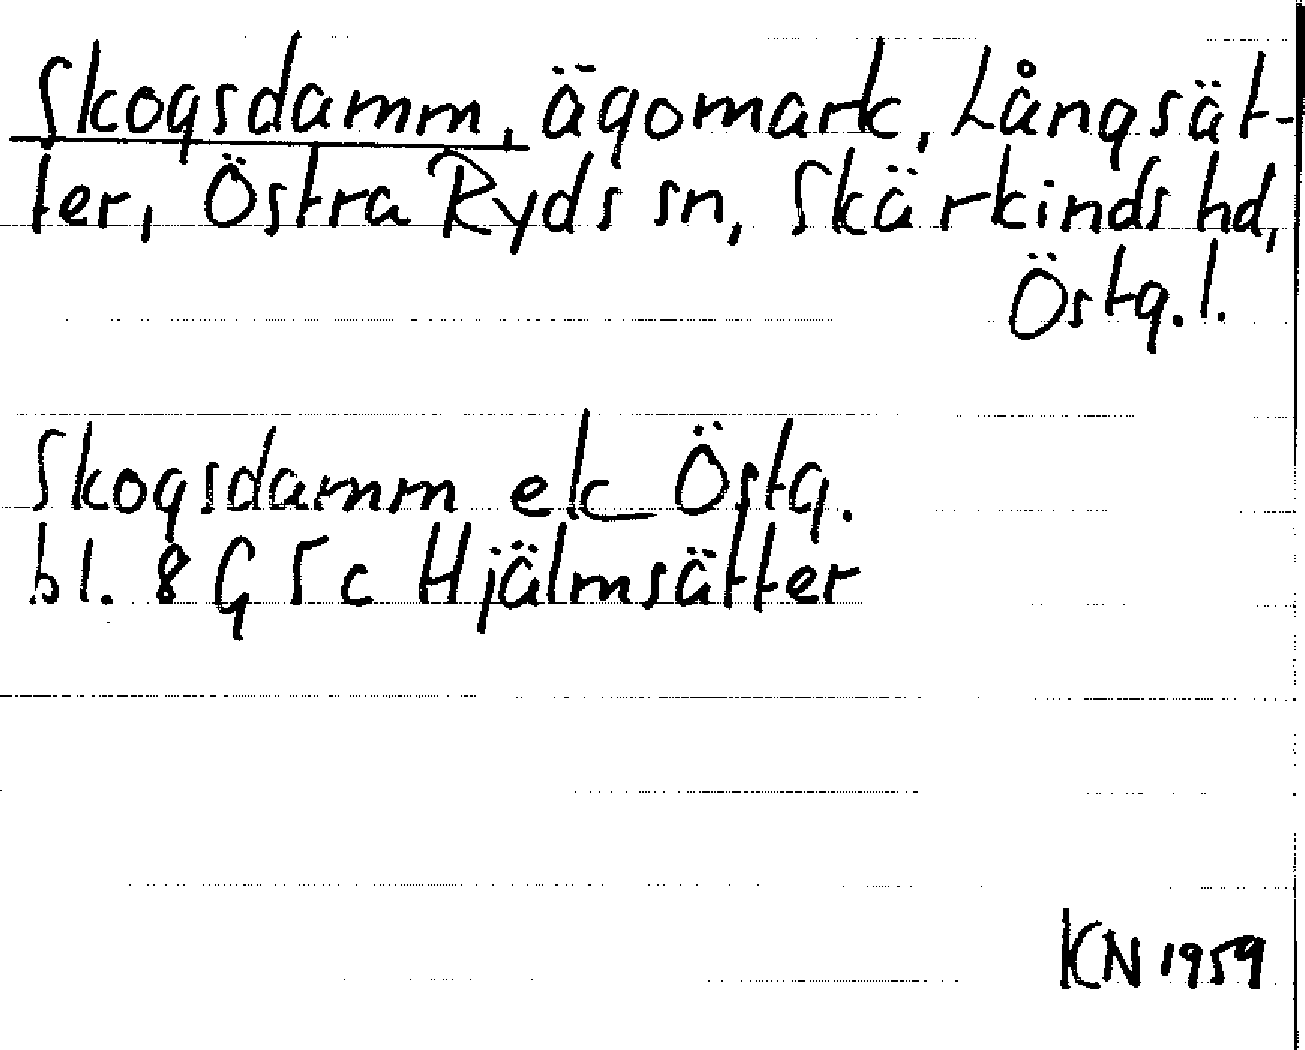 Skogsdamm, ägomark, Långsät-
ter, Östra Ryds sn, Skärkinds hd,
Östg. l.
Skogsdamm ek Östg.
bl. 8 G 5 c Hjälmsätter
KN 1959